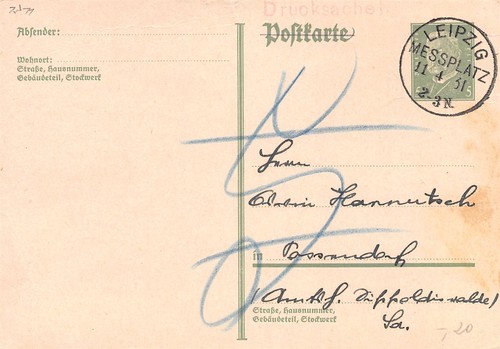 Drucksache!
Absender:
Postkarte
LEIPZIG
MESSPLATZ
11 4 31
2-3 N.
5
Wohnort:
Straße, Hausnummer,
Gebäudeteil, Stockwerk
Herrn
Hannutsch
in Possendorf
(Amtsh. Dippoldiswalde)
Sa.
Straße, Hausnummer,
Gebäudeteil, Stockwerk
-,20